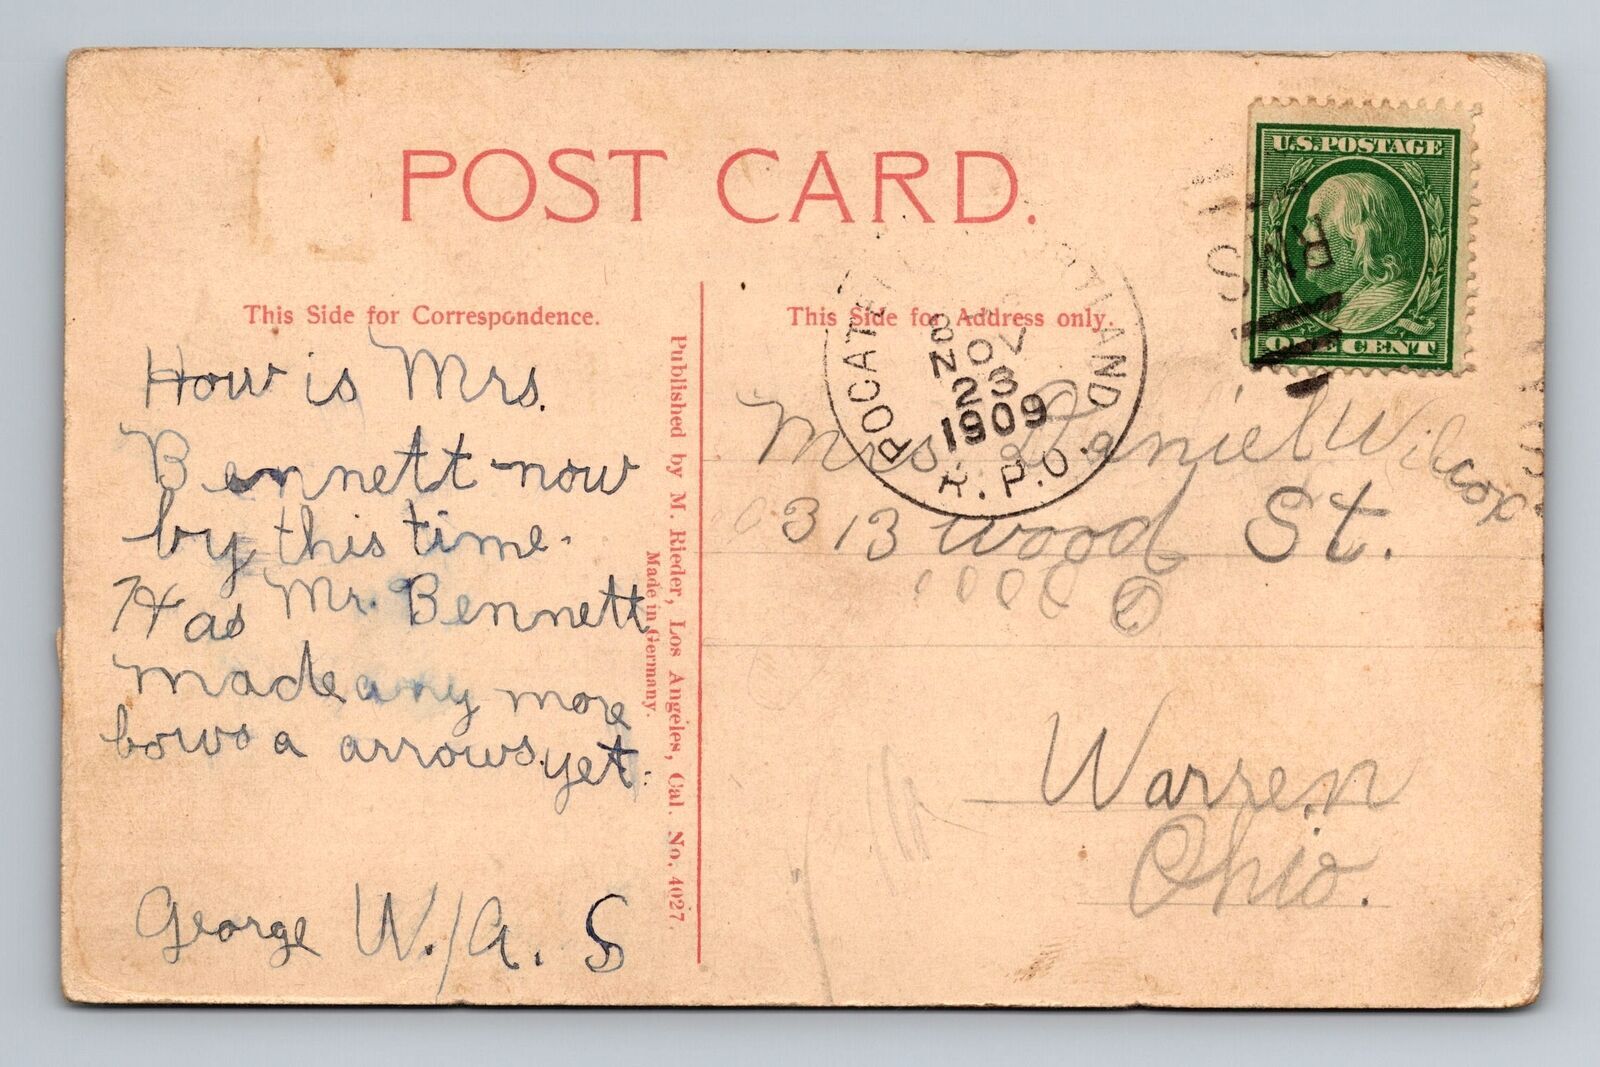 POST CARD.
This Side for Correspondence.
How is Mrs.
Bennett now
by this time.
Has Mr. Bennett
made any more
bows a arrows yet.
George W./A. S
Published by M. Rieder, Los Angeles, Cal. No. 4027.
Made in Germany.
This Side for Address only.
U.S. POSTAGE
ONE CENT
RMS
NOV
23
1909
R.P.O.
Mrs Daniel Wilcox
313 Wood St.
Warren
Ohio.